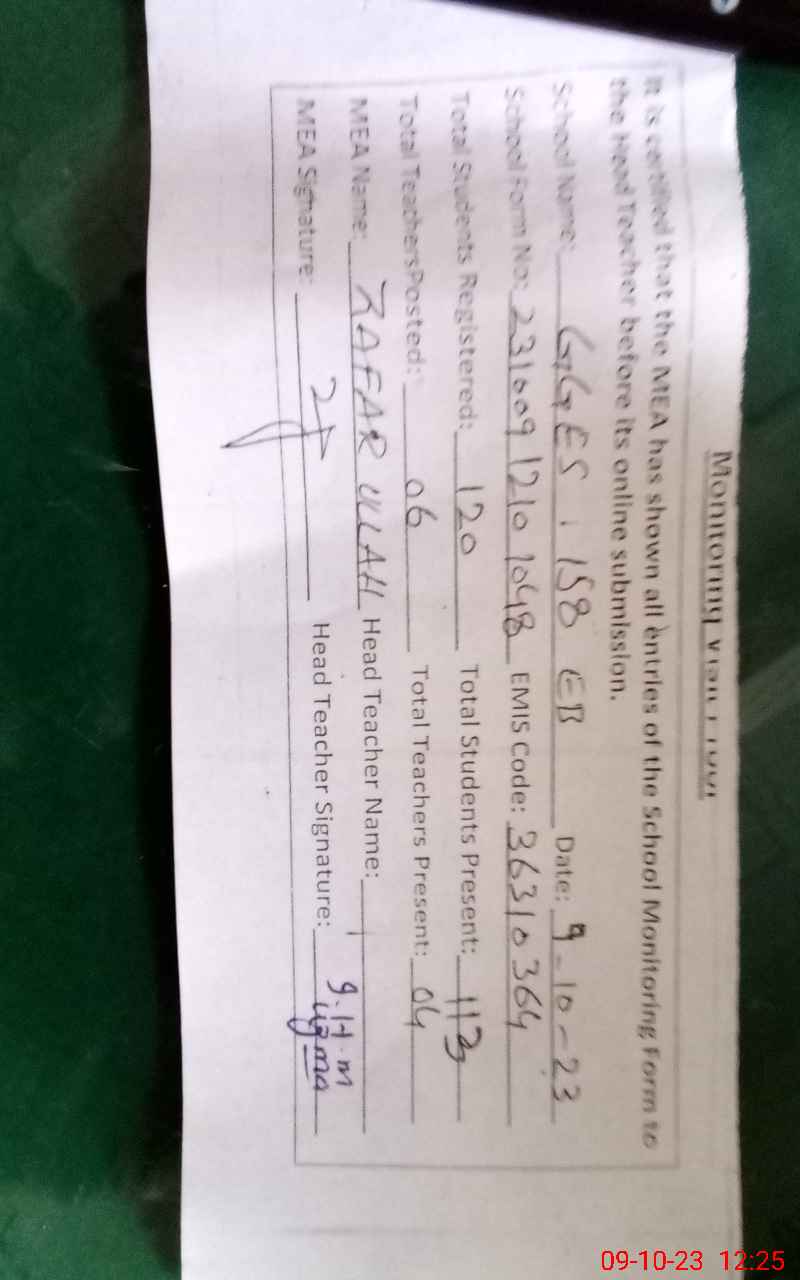 Monitoring Visit Proof
It is certified that the MEA has shown all entries of the School Monitoring Form to
the Head Teacher before its online submission.
School Name: GGES . 158 EB Date: 9-10-23
School Form No: 231009 1210 1048 EMIS Code: 36310364
Total Students Registered: 120 Total Students Present: 113
Total TeachersPosted: 06 Total Teachers Present: 04
MEA Name: ZAFAR ULLAH Head Teacher Name:
MEA Signature: Head Teacher Signature:
09-10-23 12:25